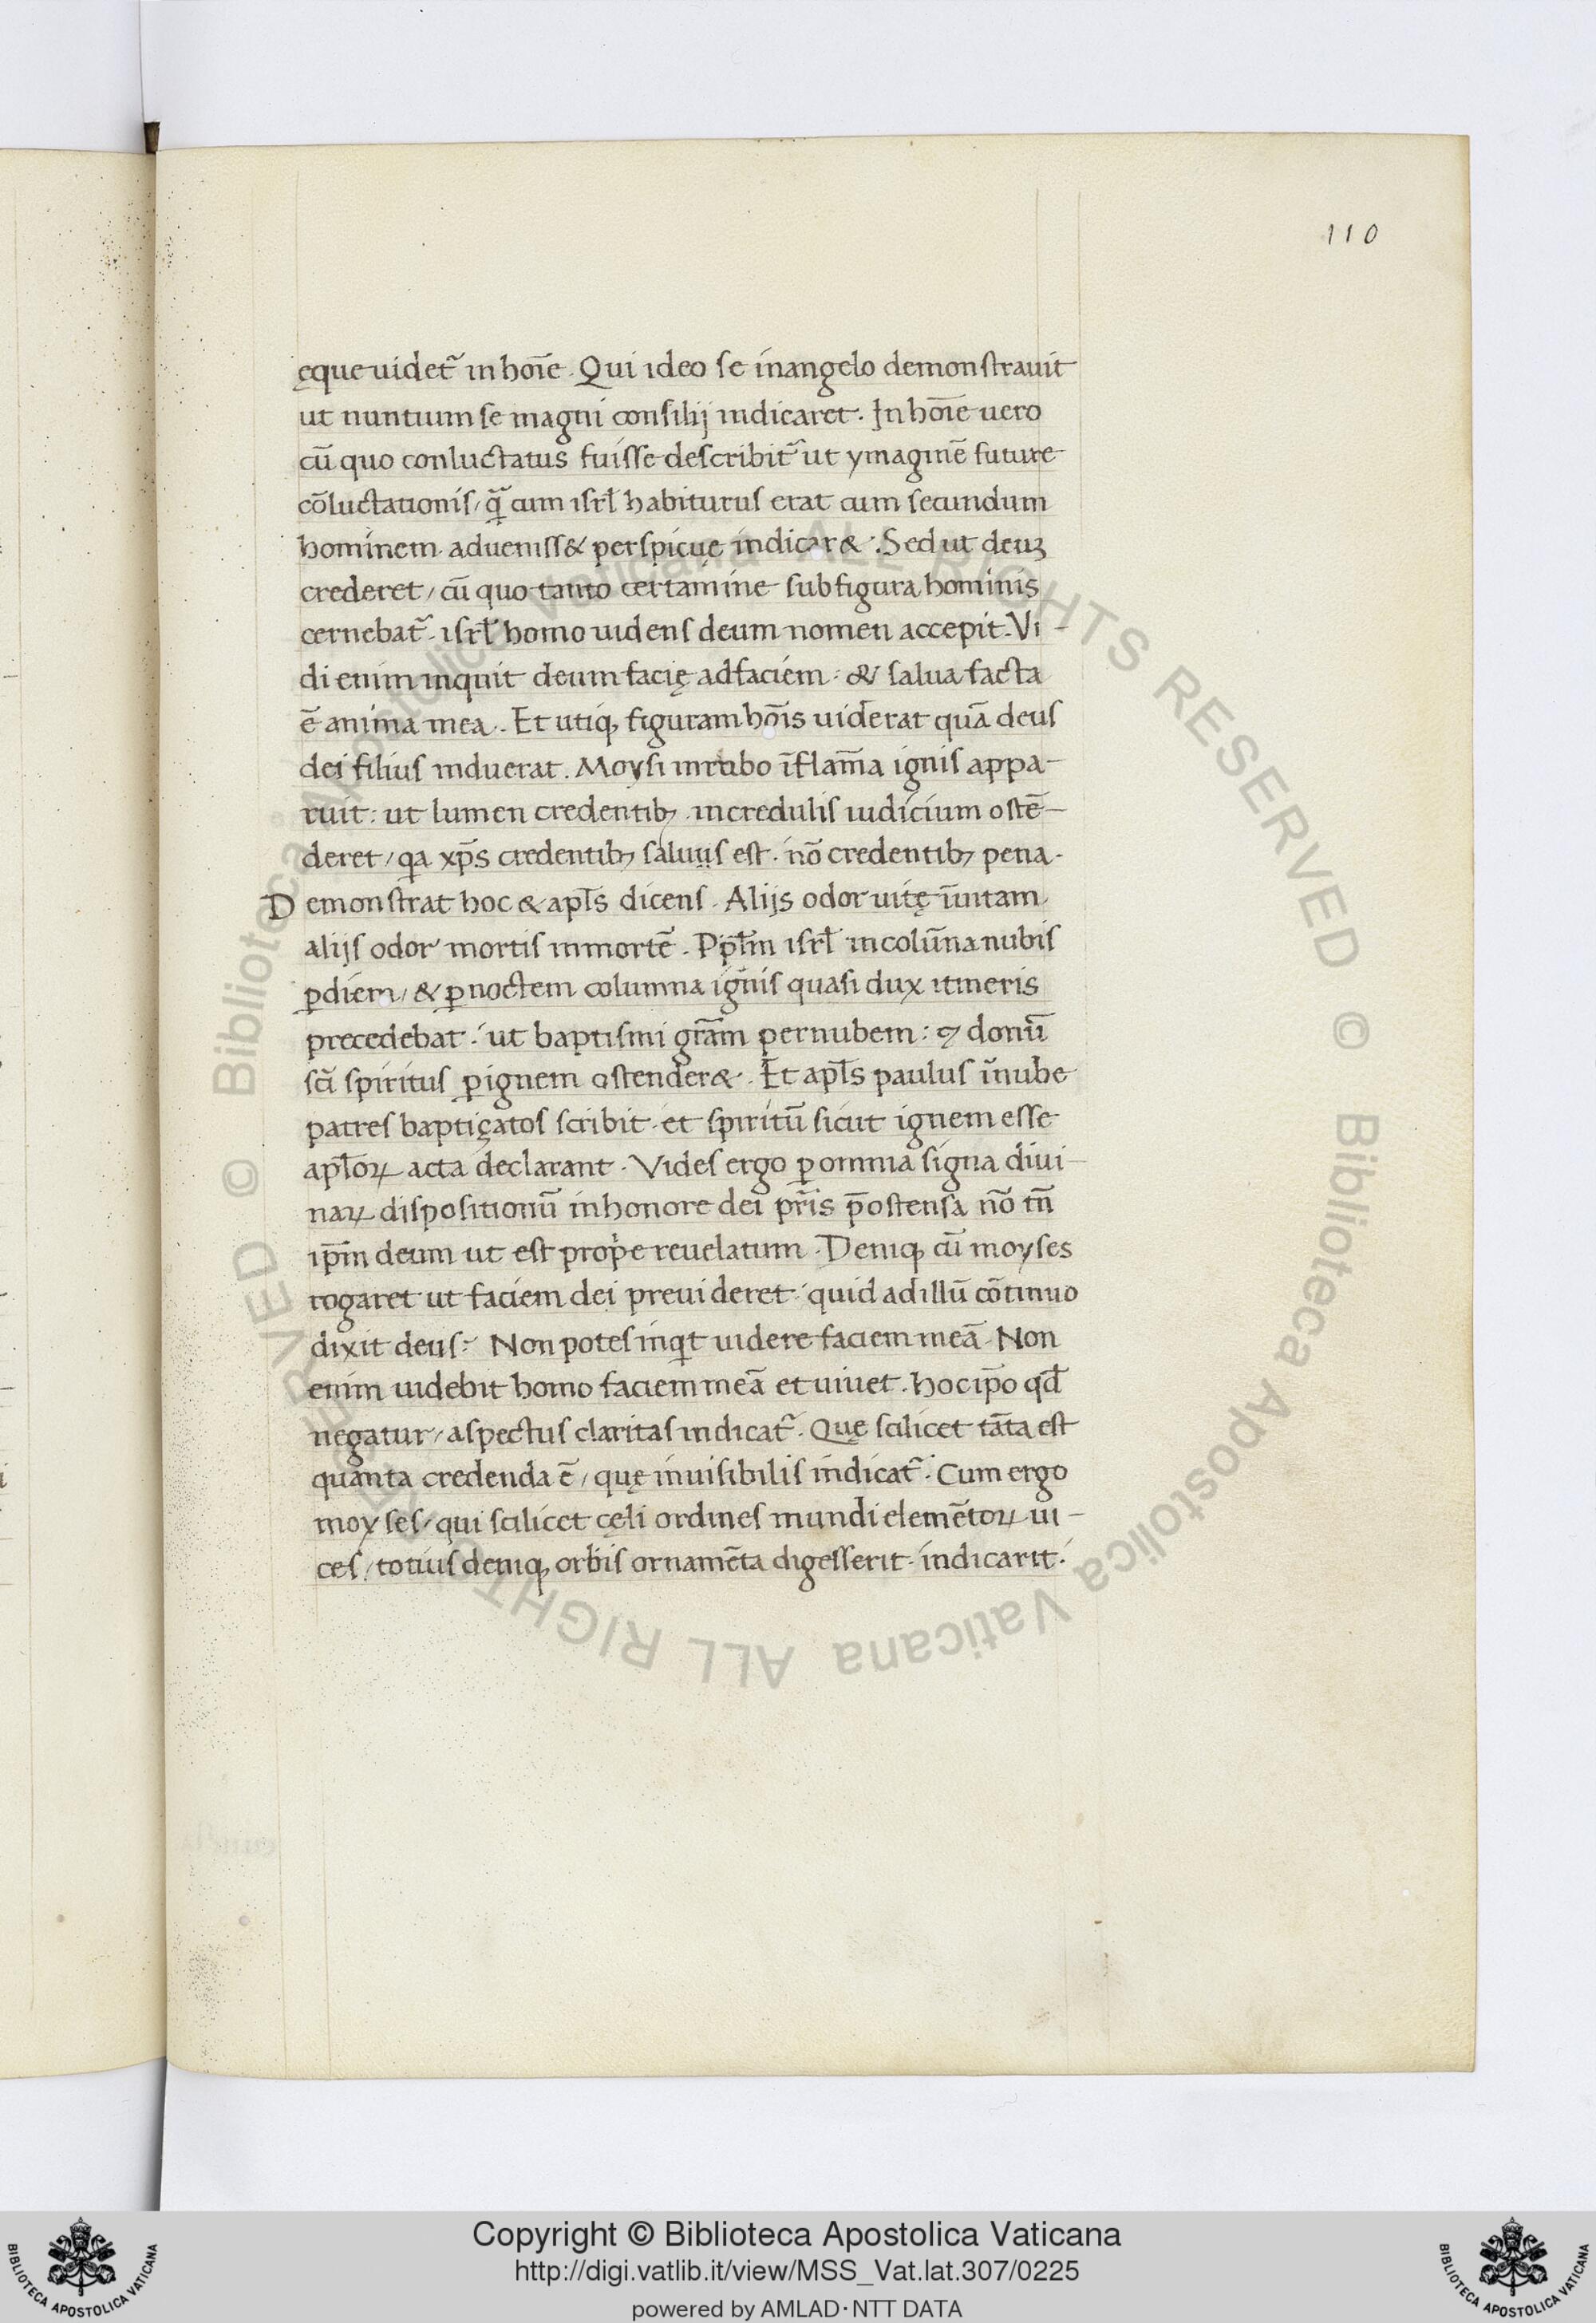 110
ęque uidet᷑ in hoīe. Qui ideo se in angelo demonstrauit
ut nuntium se magni consilij indicaret. In hoīe uero
cū quo conluctatus fuisse describit᷑ ut ymaginē future
cōluctationis, q̄ cum isrł habiturus erat cum secundum
hominem aduenisset perspicuę indicar& : Sed ut deuꝫ
crederet, cū quo tanto certamine sub figura hominis
cernebat᷑. isrł homo uidens deum nomen accepit. Vi-
di enim inquit deum facię ad faciem : & salua facta
ē anima mea. Et utiqꝫ figuram hōis uiderat quā deus
dei filius induerat. Moysi in rubo ī flam̄a ignis appa-
ruit : ut lumen credentibꝫ. incredulis iudicium ostē-
deret, qa xp̄s credentibꝫ saluus est. nō credentibꝫ pena.
Demonstrat hoc & apłs dicens. Alijs odor uitę ī uitam,
alijs odor mortis in mortē. Ppłm isrł in colūna nubis
ꝑ diem, & ꝑ noctem columna ignis quasi dux itineris
precedebat : ut baptismi gr̄am per nubem : ⁊ donū
sc̄i spiritus ꝑ ignem ostender&. Et apłs paulus ī nube
patres baptiçatos scribit. et spiritū sicut ignem esse
apłoꝝ acta declarant. Vides ergo ꝑ omnia signa diui-
naꝝ dispositionū in honore dei pr̄is p̄ostensa nō tn̄
ip̄m deum ut est prope reuelatum. Deniqꝫ cū moyses
rogaret ut faciem dei preuideret : quid ad illū cōtinuo
dixit deus ? Non potes inqt uidere faciem meā. Non
enim uidebit homo faciem meā et uiuet. hoc ip̄o qd̄
negatur, aspectus claritas indicat᷑. Quę scilicet tāta est
quanta credenda ē, quę inuisibilis indicat᷑. Cum ergo
moyses, qui scilicet cęli ordines mundi elemētoꝝ ui-
ces, totius deniqꝫ orbis ornamēta digesserit. indicarit.
Copyright © Biblioteca Apostolica Vaticana
http://digi.vatlib.it/view/MSS_Vat.lat.307/0225
powered by AMLAD·NTT DATA